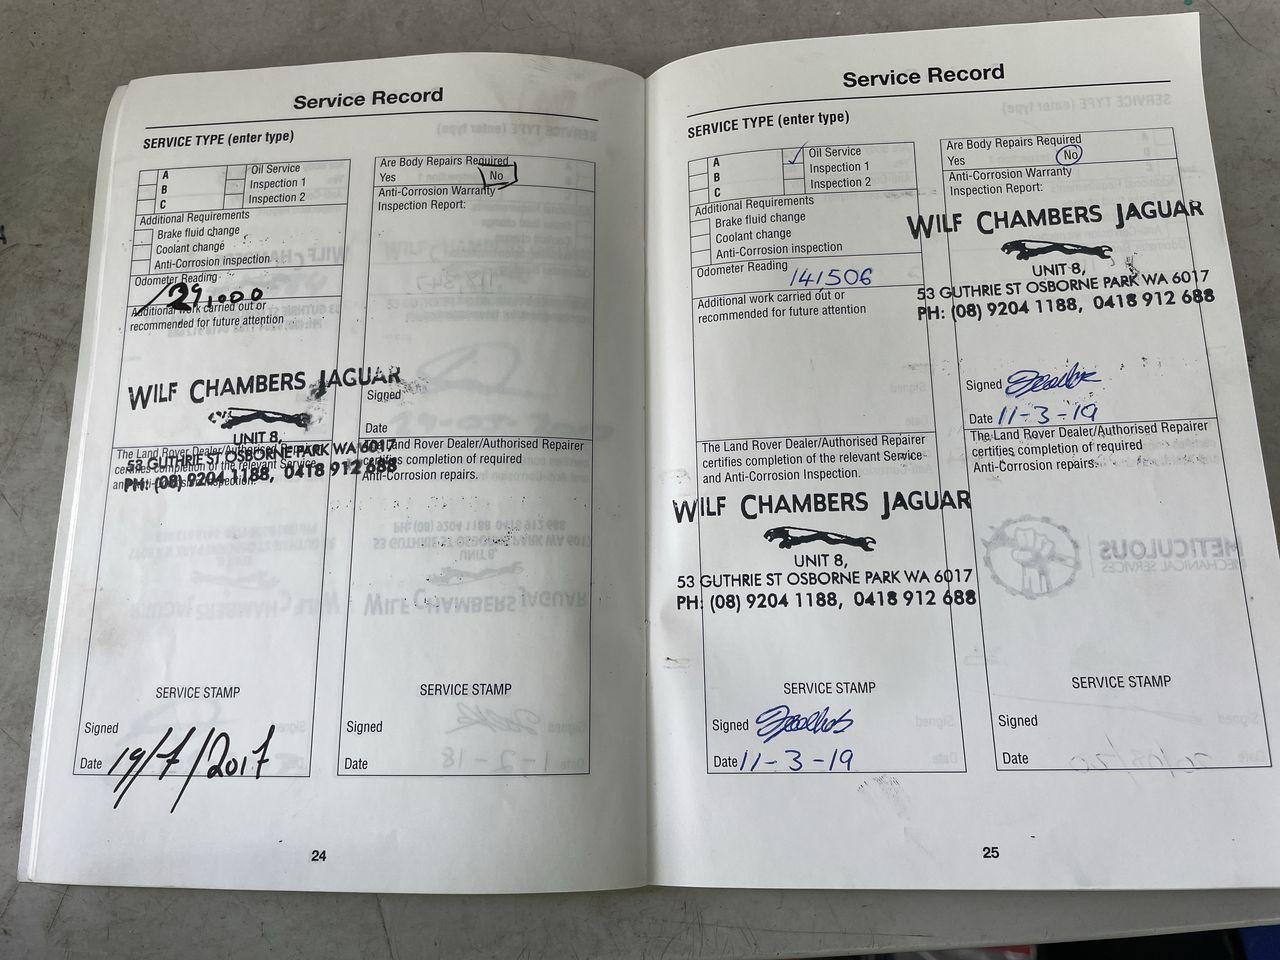 Service Record
SERVICE TYPE (enter type)
A
B
C
Oil Service
Inspection 1
Inspection 2
Additional Requirements
Brake fluid change
Coolant change
Anti-Corrosion inspection
Odometer Reading
129,000
Additional work carried out or
recommended for future attention
WILF CHAMBERS JAGUAR
UNIT 8,
53 GUTHRIE ST OSBORNE PARK WA 6017
PH: (08) 9204 1188, 0418 912 688
The Land Rover Dealer/Authorised Repairer
certifies completion of the relevant Service
and Anti-Corrosion Inspection.
SERVICE STAMP
Signed
Date 19/7/2017
Are Body Repairs Required
Yes No
Anti-Corrosion Warranty
Inspection Report:
Signed
Date
The Land Rover Dealer/Authorised Repairer
certifies completion of required
Anti-Corrosion repairs.
SERVICE STAMP
Signed
Date
24
Service Record
SERVICE TYPE (enter type)
A
B
C
Oil Service
Inspection 1
Inspection 2
Additional Requirements
Brake fluid change
Coolant change
Anti-Corrosion inspection
Odometer Reading
141506
Additional work carried out or
recommended for future attention
The Land Rover Dealer/Authorised Repairer
certifies completion of the relevant Service
and Anti-Corrosion Inspection.
WILF CHAMBERS JAGUAR
UNIT 8,
53 GUTHRIE ST OSBORNE PARK WA 6017
PH: (08) 9204 1188, 0418 912 688
SERVICE STAMP
Signed
Date 11-3-19
Are Body Repairs Required
Yes No
Anti-Corrosion Warranty
Inspection Report:
WILF CHAMBERS JAGUAR
UNIT 8,
53 GUTHRIE ST OSBORNE PARK WA 6017
PH: (08) 9204 1188, 0418 912 688
Signed
Date 11-3-19
The Land Rover Dealer/Authorised Repairer
certifies completion of required
Anti-Corrosion repairs.
SERVICE STAMP
Signed
Date
25